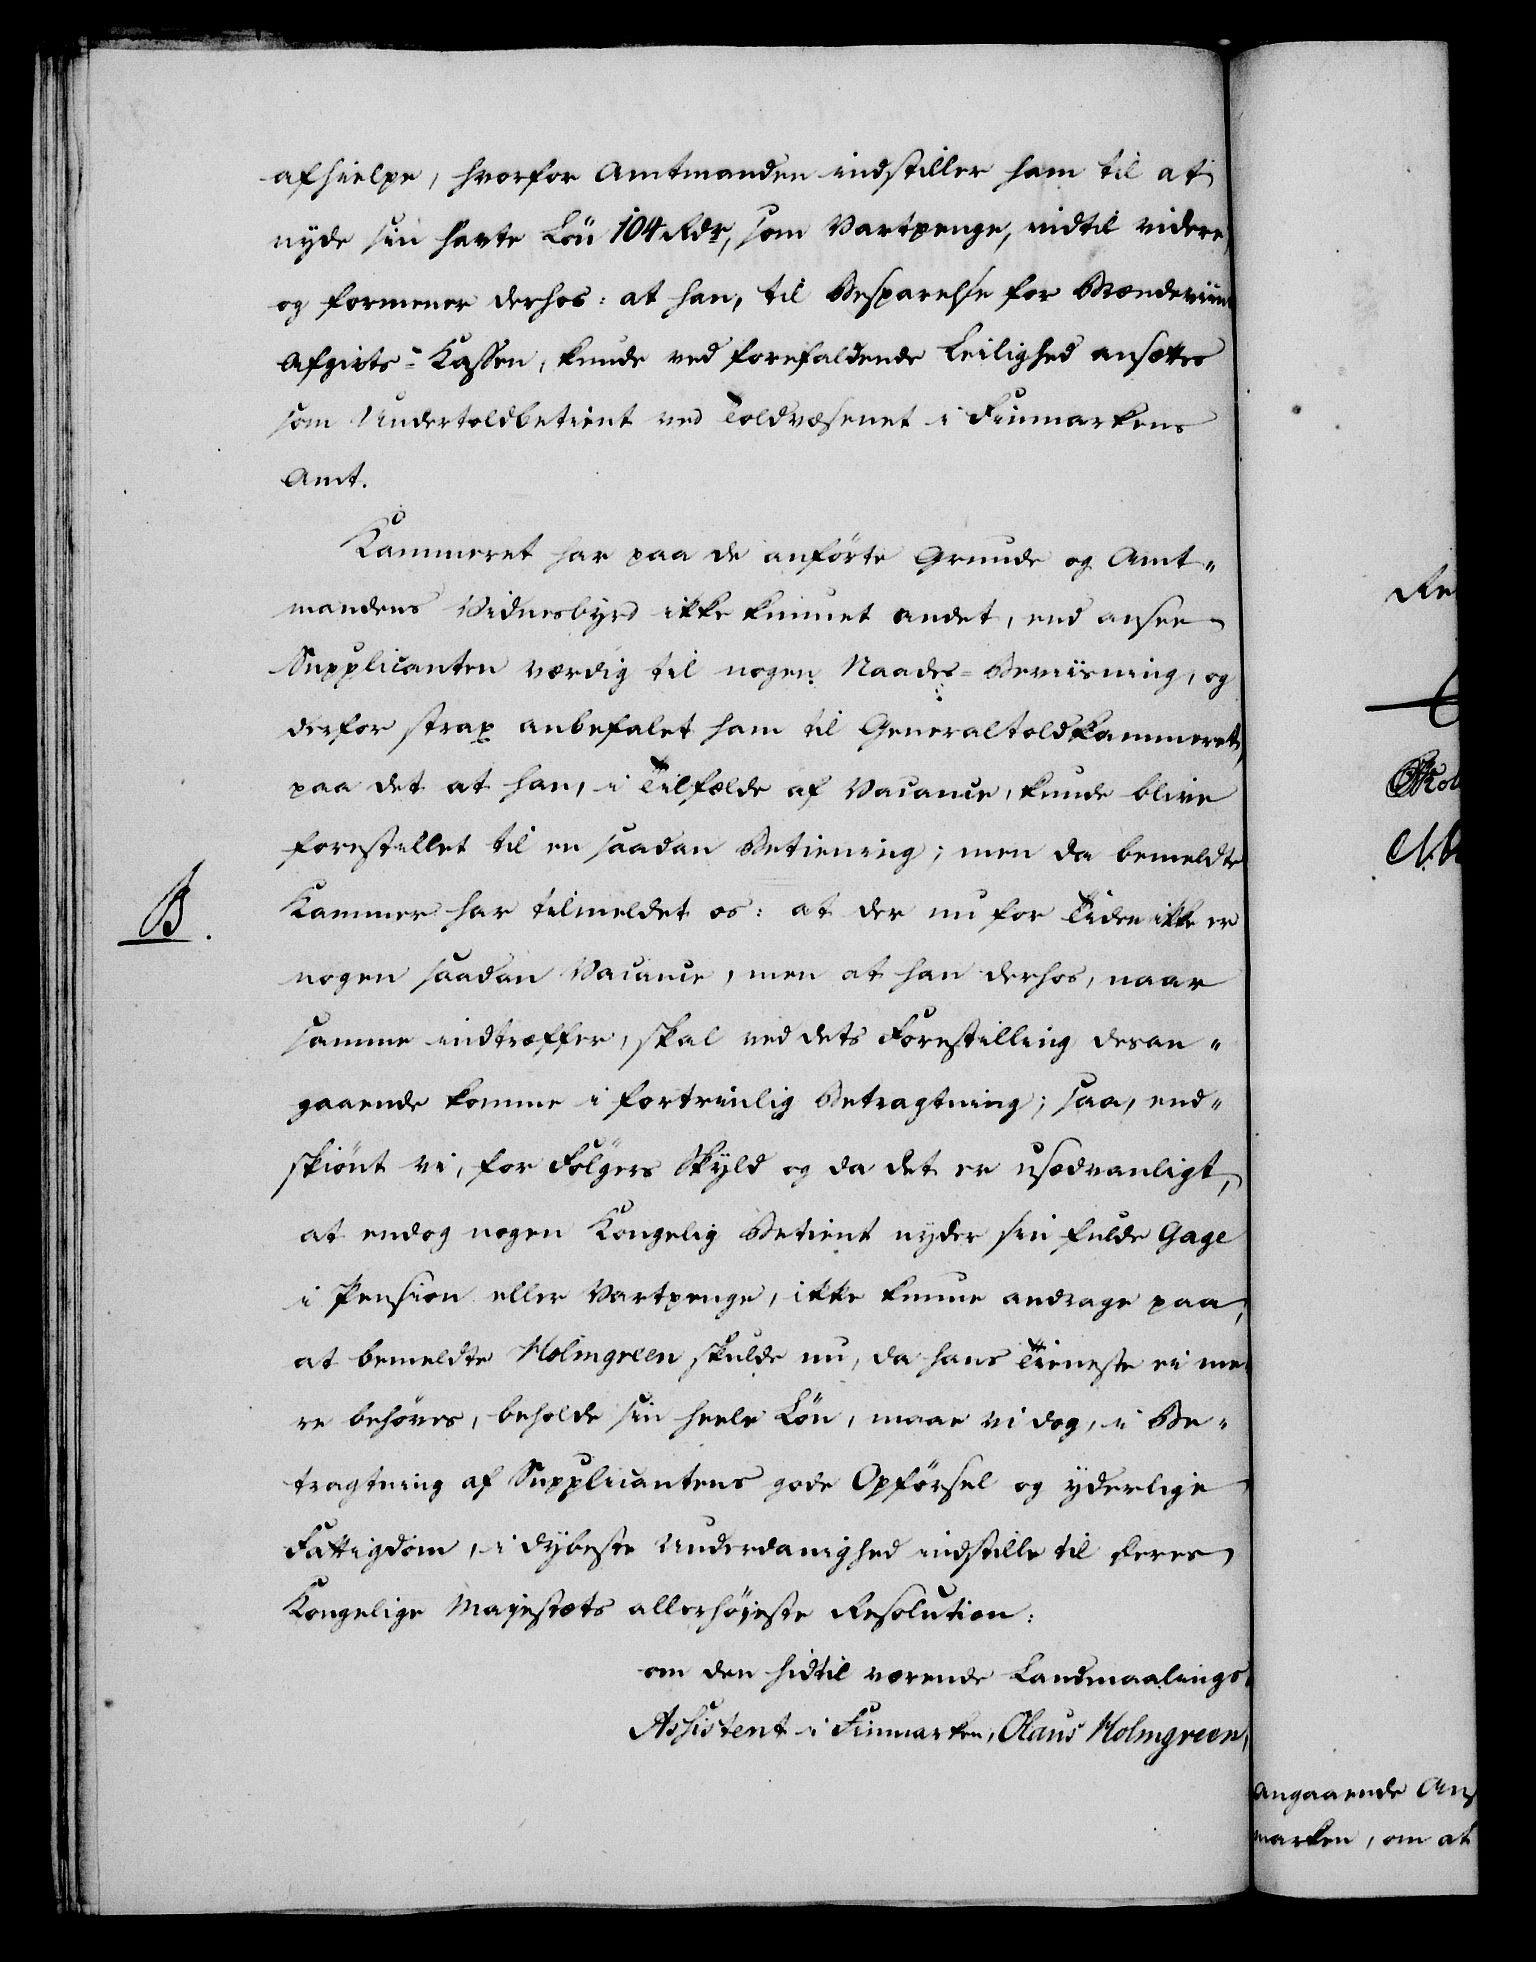 afhielpe, hvorfor Amtmanden indstiller ham til at
nyde sin havte Løn 104 Rdr, som Vartpenge, indtil videre,
og formener derhos: at han, til Besparelse for Brændeviins
Afgivts-Kassen, kunde ved forefaldende Leilighed ansættes
som Undertoldbetient ved Toldvæsenet i Finmarkens
Amt.
Kammeret har paa de anførte Grunde og Amt-
mandens Vidnesbyrd ikke kunnet andet, end ansee
Supplicanten værdig til nogen Naades-Beviisning, og
derfor strax anbefalet ham til Generaltoldkammeret,
paa det at han, i Tilfælde af Vacance, kunde blive
forestillet til en saadan Betiening; men da bemeldte
B.
Kammer har tilmeldet os: at der nu for Tiden ikke er
nogen saadan Vacance, men at han derhos, naar
samme indtræffer, skal ved dets Forestilling desan-
gaaende komme i fortrinlig Betragtning; saa, end-
skiønt vi, for Følgers Skyld og da det er usædvanligt,
at endog nogen Kongelig Betient nyder sin fulde Gage
i Pension eller Vartpenge, ikke kunne andrage paa,
at bemeldte Holmgreen skulde nu, da hans Tieneste ei me-
re behøves, beholde sin heele Løn, maae vi dog, i Be-
tragtning af Supplicantens gode Opførsel og yderlige
Fattigdom, i dybeste Underdanighed indstille til Deres
Kongelige Majestæts allerhøieste Resolution:
om den hidtil værende Landmaalings-
Assistent i Finmarken, Olaus Holmgreen,
angaaende Ans
marken, om at